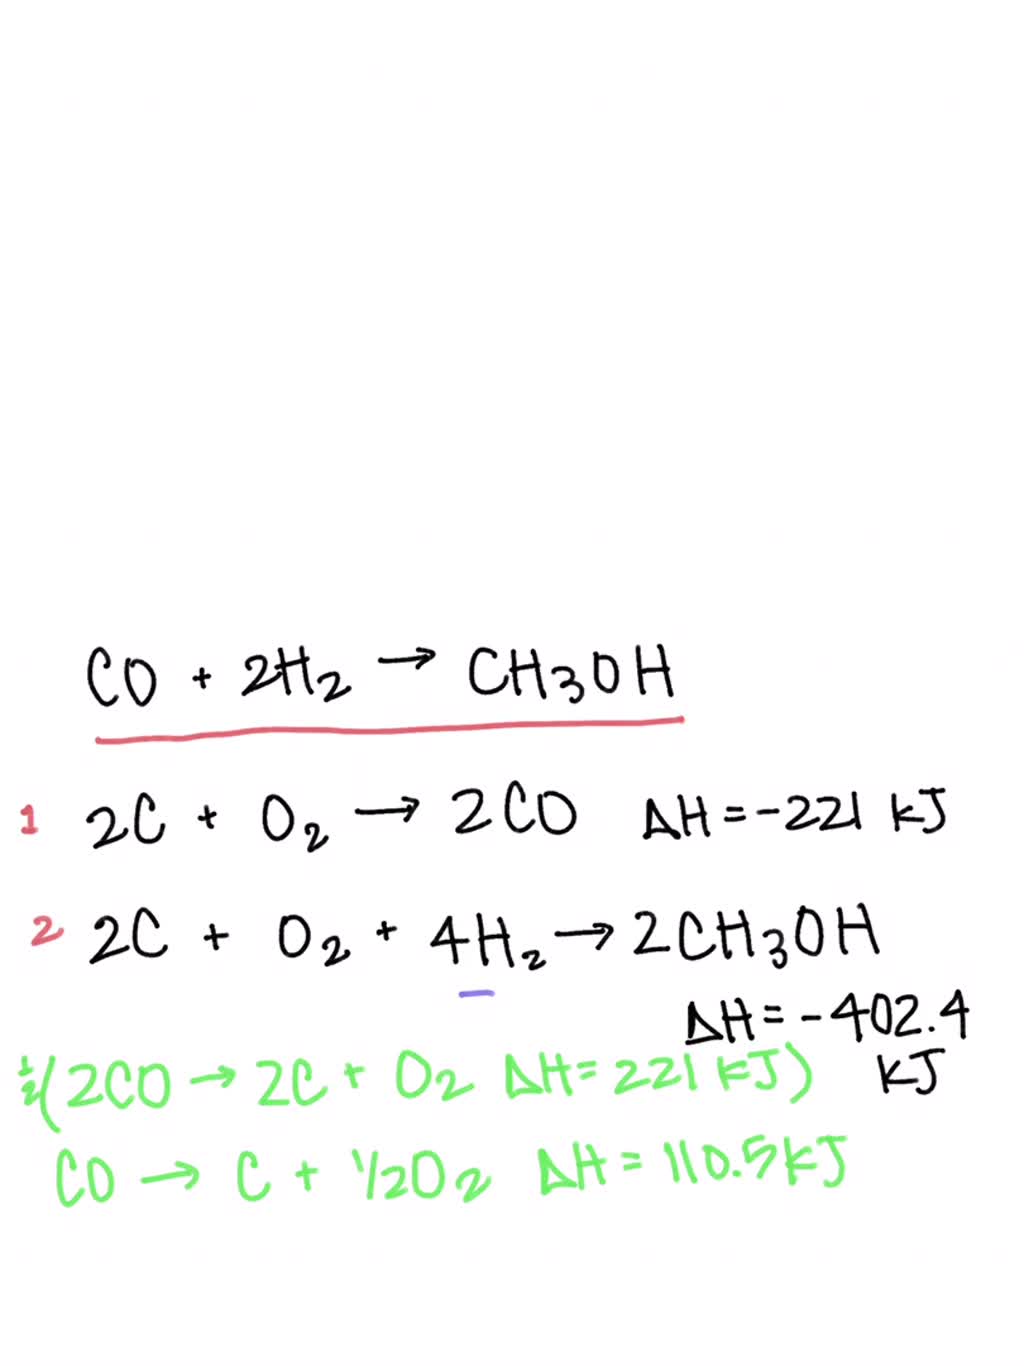 CO + 2H₂ → CH₃OH
1 2C + O₂ → 2CO ΔH = -221 kJ
2 2C + O₂ + 4H₂ → 2CH₃OH
ΔH = -402.4
kJ
½(2CO → 2C + O₂ ΔH = 221 kJ)
CO → C + 1/2O₂ ΔH = 110.5 kJ